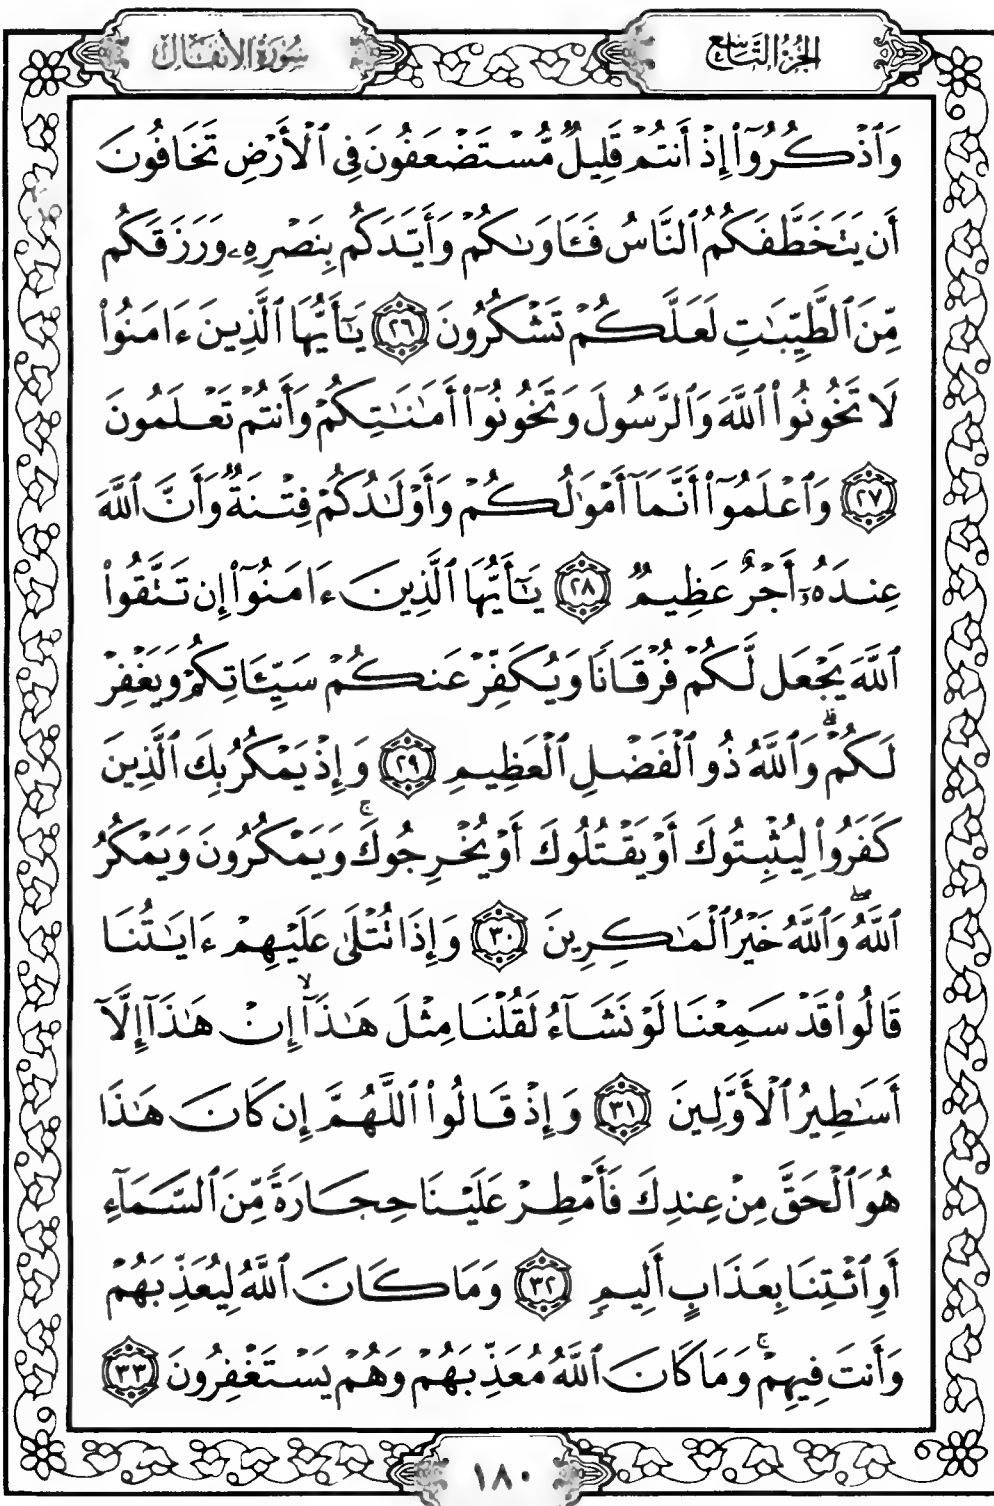 الجُزْءُ التَّاسِعُ
سُورَةُ الأَنفَالِ
وَٱذۡكُرُوٓاْ إِذۡ أَنتُمۡ قَلِيلٞ مُّسۡتَضۡعَفُونَ فِي ٱلۡأَرۡضِ تَخَافُونَ
أَن يَتَخَطَّفَكُمُ ٱلنَّاسُ فَـَٔاوَىٰكُمۡ وَأَيَّدَكُم بِنَصۡرِهِۦ وَرَزَقَكُم
مِّنَ ٱلطَّيِّبَٰتِ لَعَلَّكُمۡ تَشۡكُرُونَ ٢٦ يَٰٓأَيُّهَا ٱلَّذِينَ ءَامَنُواْ
لَا تَخُونُواْ ٱللَّهَ وَٱلرَّسُولَ وَتَخُونُوٓاْ أَمَٰنَٰتِكُمۡ وَأَنتُمۡ تَعۡلَمُونَ
٢٧ وَٱعۡلَمُوٓاْ أَنَّمَآ أَمۡوَٰلُكُمۡ وَأَوۡلَٰدُكُمۡ فِتۡنَةٞ وَأَنَّ ٱللَّهَ
عِندَهُۥٓ أَجۡرٌ عَظِيمٞ ٢٨ يَٰٓأَيُّهَا ٱلَّذِينَ ءَامَنُوٓاْ إِن تَتَّقُواْ
ٱللَّهَ يَجۡعَل لَّكُمۡ فُرۡقَانٗا وَيُكَفِّرۡ عَنكُمۡ سَيِّـَٔاتِكُمۡ وَيَغۡفِرۡ
لَكُمۡۗ وَٱللَّهُ ذُو ٱلۡفَضۡلِ ٱلۡعَظِيمِ ٢٩ وَإِذۡ يَمۡكُرُ بِكَ ٱلَّذِينَ
كَفَرُواْ لِيُثۡبِتُوكَ أَوۡ يَقۡتُلُوكَ أَوۡ يُخۡرِجُوكَۚ وَيَمۡكُرُونَ وَيَمۡكُرُ
ٱللَّهُۖ وَٱللَّهُ خَيۡرُ ٱلۡمَٰكِرِينَ ٣٠ وَإِذَا تُتۡلَىٰ عَلَيۡهِمۡ ءَايَٰتُنَا
قَالُواْ قَدۡ سَمِعۡنَا لَوۡ نَشَآءُ لَقُلۡنَا مِثۡلَ هَٰذَآۙ إِنۡ هَٰذَآ إِلَّآ
أَسَٰطِيرُ ٱلۡأَوَّلِينَ ٣١ وَإِذۡ قَالُواْ ٱللَّهُمَّ إِن كَانَ هَٰذَا
هُوَ ٱلۡحَقَّ مِنۡ عِندِكَ فَأَمۡطِرۡ عَلَيۡنَا حِجَارَةٗ مِّنَ ٱلسَّمَآءِ
أَوِ ٱئۡتِنَا بِعَذَابٍ أَلِيمٖ ٣٢ وَمَا كَانَ ٱللَّهُ لِيُعَذِّبَهُمۡ
وَأَنتَ فِيهِمۡۚ وَمَا كَانَ ٱللَّهُ مُعَذِّبَهُمۡ وَهُمۡ يَسۡتَغۡفِرُونَ ٣٣
١٨٠